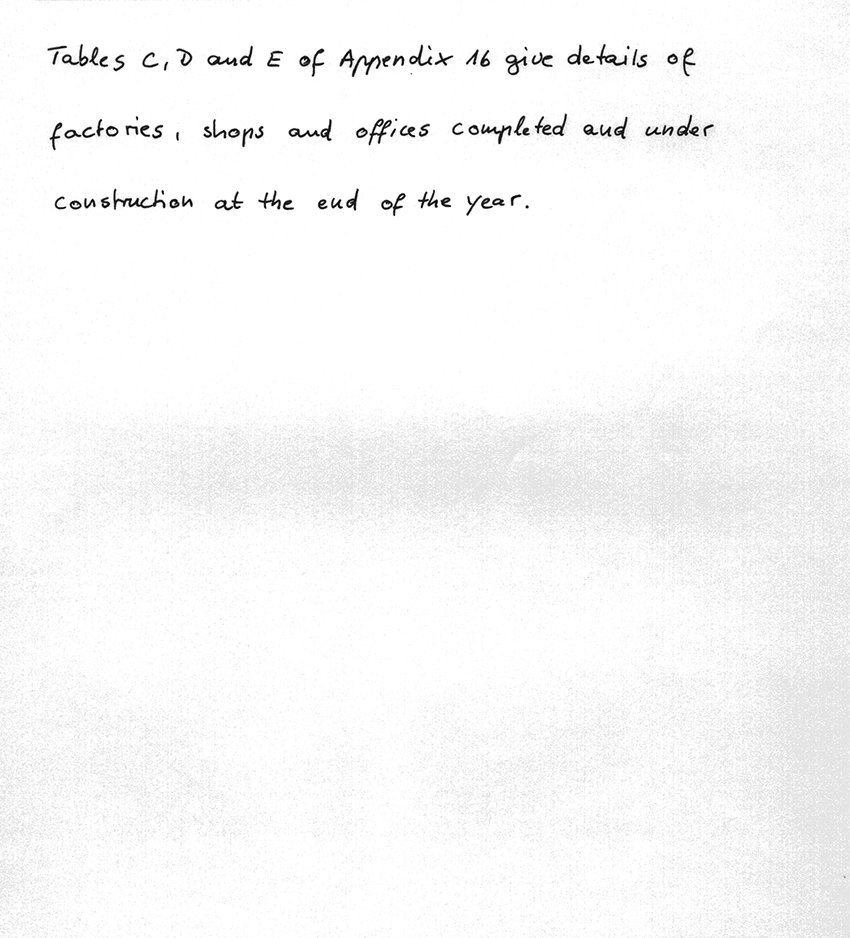 Tables C, D and E of Appendix 16 give details of
factories, shops and offices completed and under
construction at the end of the year.